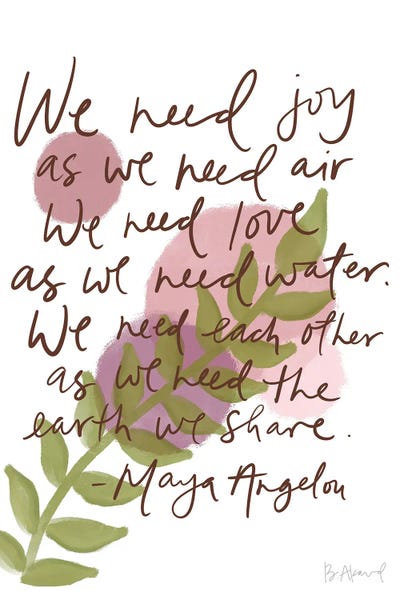 We need joy
as we need air
We need love
as we need water.
We need each other
as we need the
earth we share.
-Maya Angelou